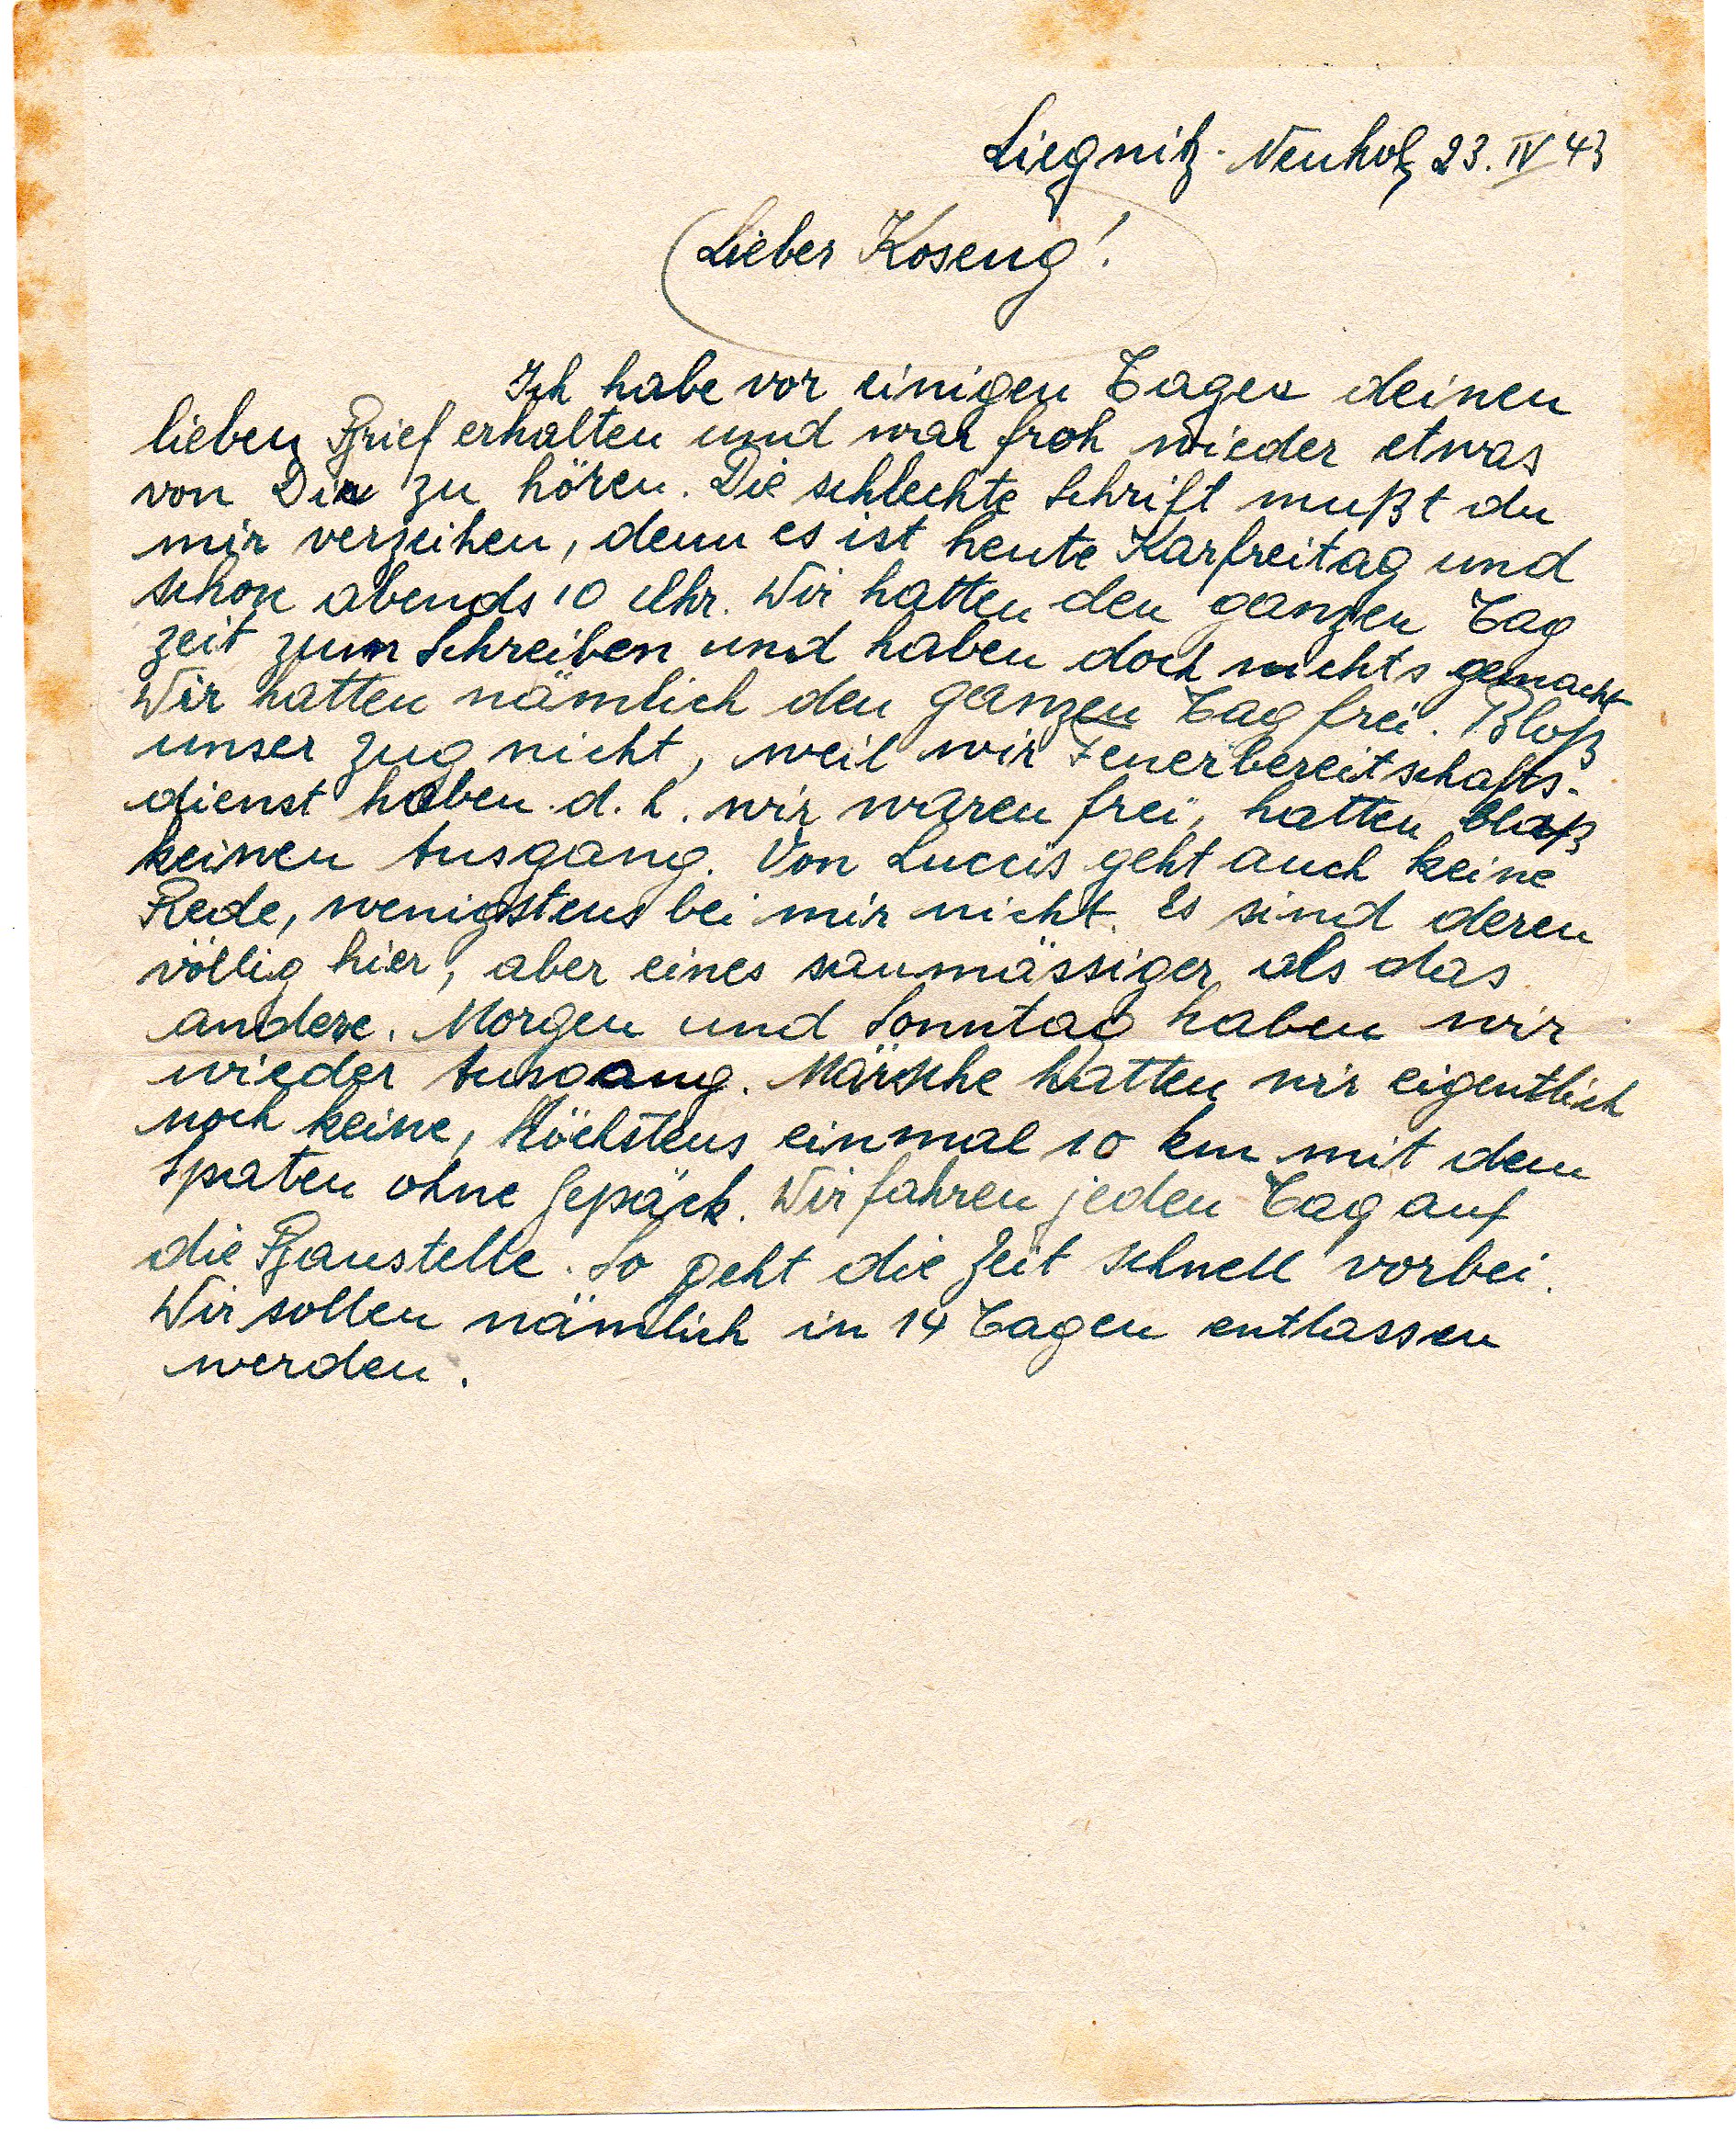 Liegnitz-Neuhof, 23. IV 43
Lieber Koseng!
Ich habe vor einigen Tagen deinen
lieben Brief erhalten und war froh wieder etwas
von Dir zu hören. Die schlechte Schrift mußt du
mir verzeihen, denn es ist heute Karfreitag und
schon abends 10 Uhr. Wir hatten den ganzen Tag
zeit zum Schreiben und haben doch nichts gemacht
Wir hatten nämlich den ganzen Tag frei. Bloß
unser Zug nicht, weil wir Feuerbereitschafts-
dienst haben d. h. wir waren frei, hatten bloß
keinen Ausgang. Von geht auch keine
Rede, wenigstens bei mir nicht. Es sind deren
völlig hier, aber eines saumässiger als das
andere. Morgen und Sonntag haben wir
wieder Ausgang. Märsche hatten wir eigentlich
noch keine, Höchstens einmal 10 km mit dem
Spaten ohne Gepäck. Wir fahren jeden Tag auf
die Baustelle. So geht die Zeit schnell vorbei.
Wir sollen nämlich in 14 Tagen entlassen
werden.